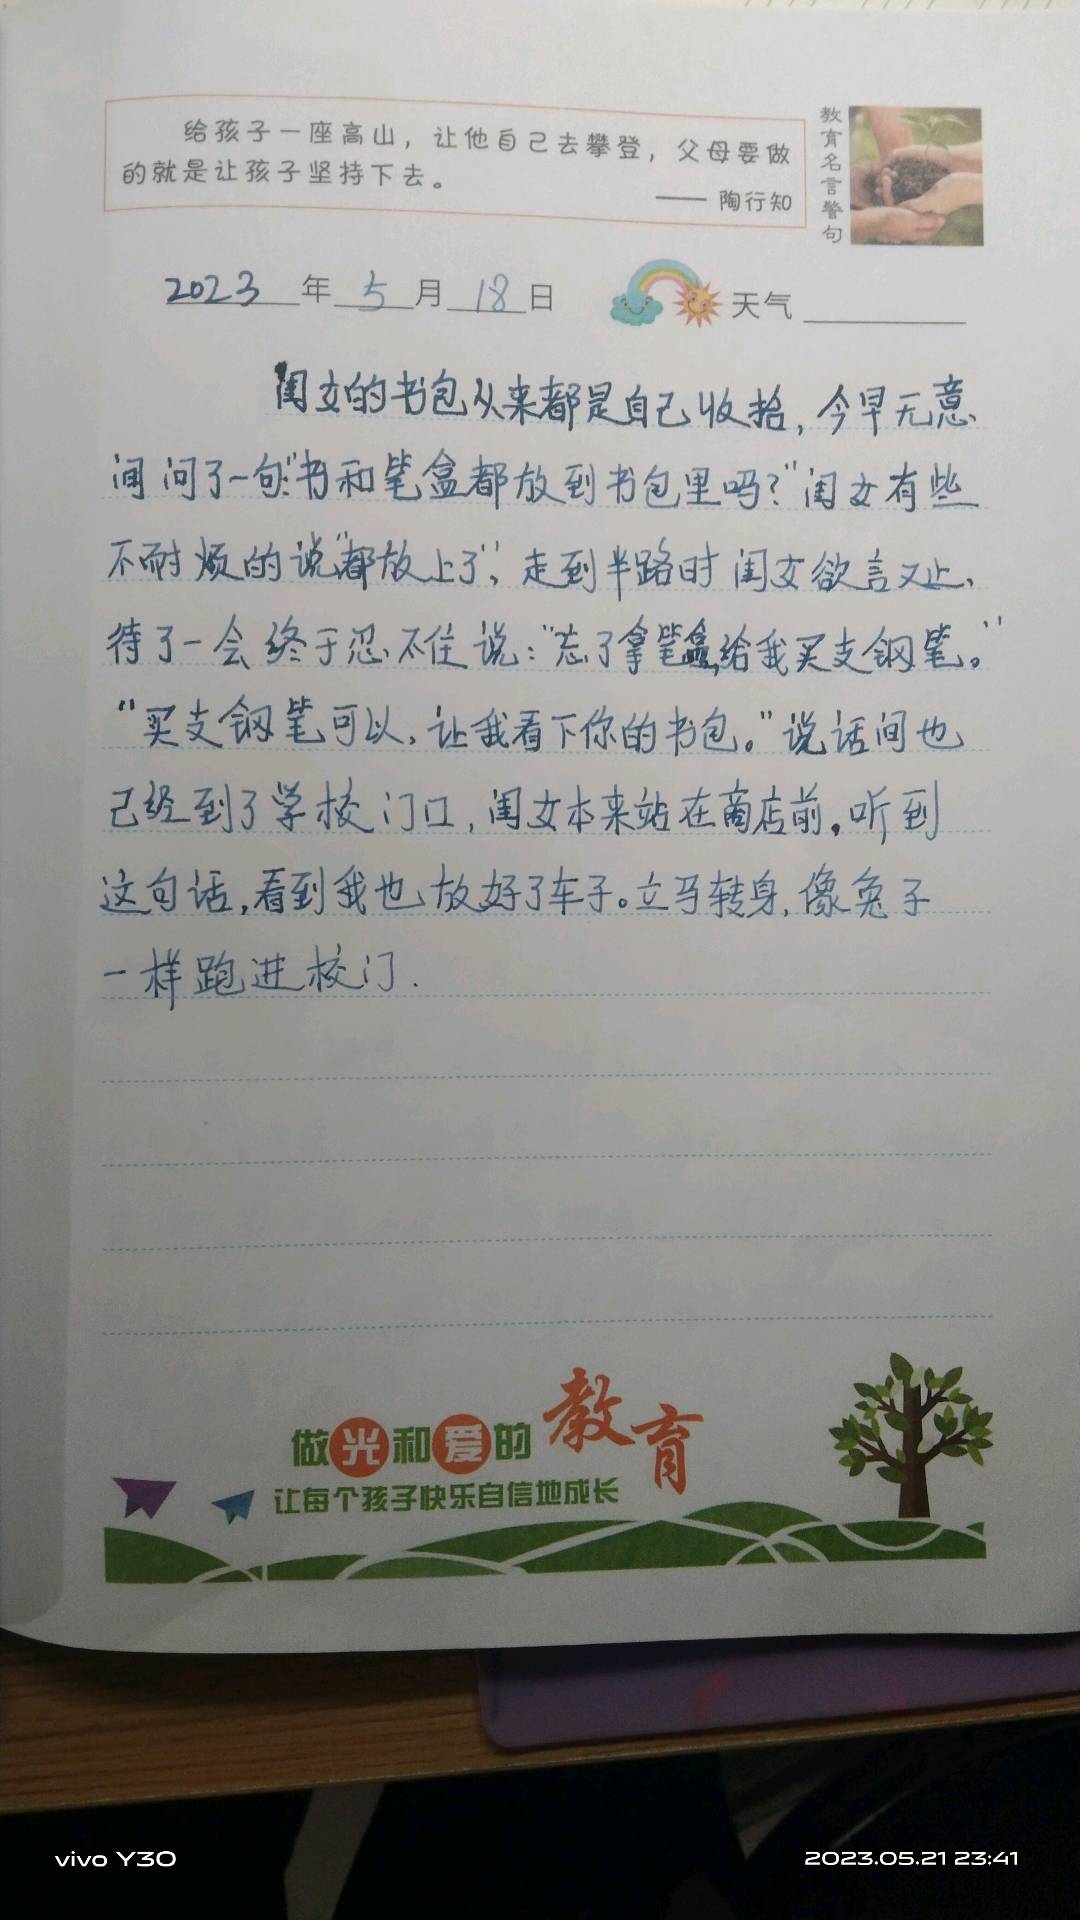 给孩子一座高山，让他自己去攀登，父母要做
的就是让孩子坚持下去。
—— 陶行知
教育名言警句
2023年5月18日 天气
闺女的书包从来都是自己收拾，今早无意
间问了一句："书和笔盒都放到书包里吗？"闺女有些
不耐烦的说"都放上了"，走到半路时闺女欲言又止、
待了一会终于忍不住说："忘了拿笔盒，给我买支钢笔。"
"买支钢笔可以，让我看下你的书包。"说话间也
已经到了学校门口，闺女本来站在商店前。听到
这句话，看到我也放好了车子。立马转身，像兔子
一样跑进校门.
做光和爱的教育
让每个孩子快乐自信地成长
vivo Y30
2023.05.21 23:41